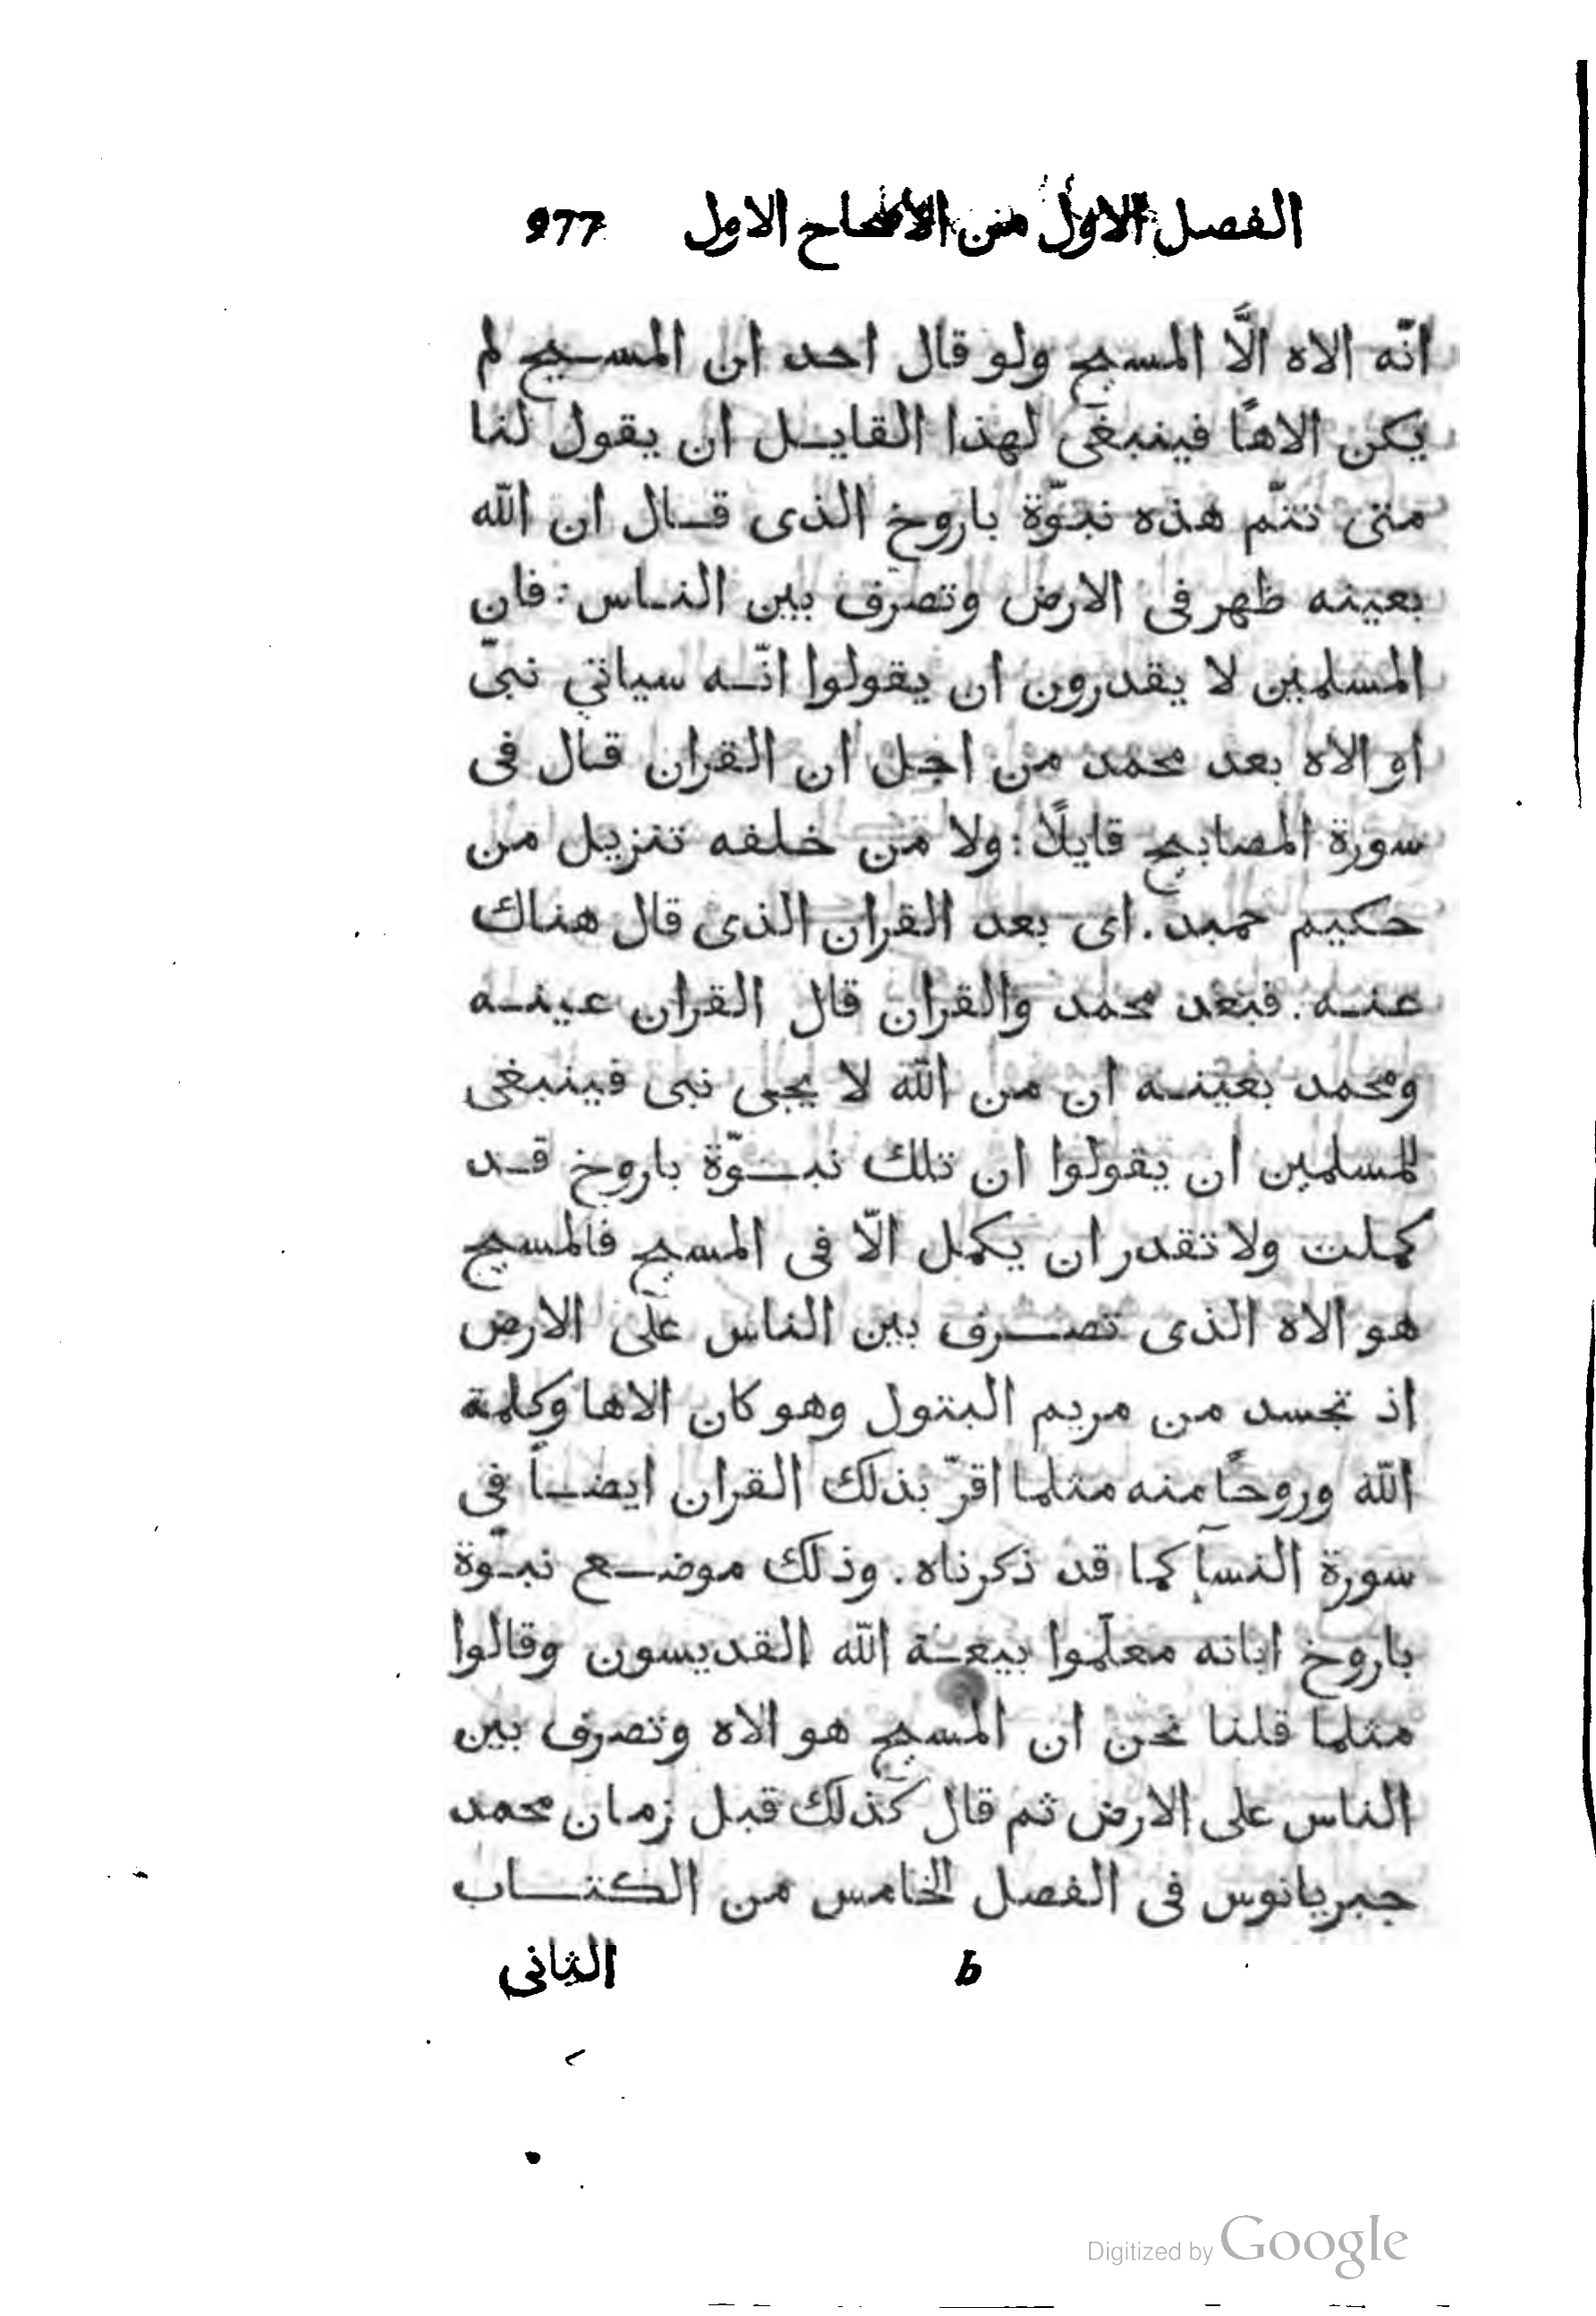 الفصل الاول من الاصحاح الاول 977
انّه الاه الَّا المسيح ولو قال احد ان المسيح لم
يكن الاهًا فينبغى لهذا القايل ان يقول لنا
متى تتّم هذه نبوّة باروخ الذى قال ان الله
بعينه ظهر فى الارض وتصرّف بين الناس: فان
المسلمين لا يقدرون ان يقولوا انّه سياتي نبىّ
او الاه بعد محمد من اجل ان القران قال فى
سورة المصابيح قايلًا: ولا من خلفه تنزيل من
حكيم حميد. اى بعد القران الذى قال هناك
عنه. فبعد محمد والقران قال القران عينه
ومحمد بعينه ان من الله لا يجى نبى فينبغى
للمسلمين ان يقولوا ان تلك نبوّة باروخ قد
كملت ولا تقدر ان يكمل الّا فى المسيح فالمسيح
هو الاه الذى تصرف بين الناس على الارض
اذ تجسد من مريم البتول وهو كان الاها وكلمة
الله وروحًا منه مثلما اقرّ بذلك القران ايضاً فى
سورة النسآ كما قد ذكرناه. وذلك موضع نبوّة
باروخ ابانه معلّموا بيعة الله القديسون وقالوا
مثلما قلنا نحن ان المسيح هو الاه وتصرف بين
الناس على الارض ثم قال كذلك قبل زمان محمد
جبريانوس فى الفصل الخامس من الكتاب
b الثانى
Digitized by Google